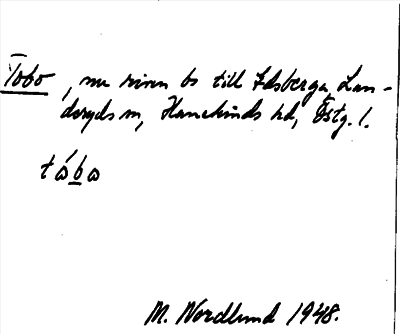 Tobo, nu riven bs till Idsberga, Lan-
deryds sn, Hanekinds hd, Östg. l.
tώbω
M. Nordlund 1948.